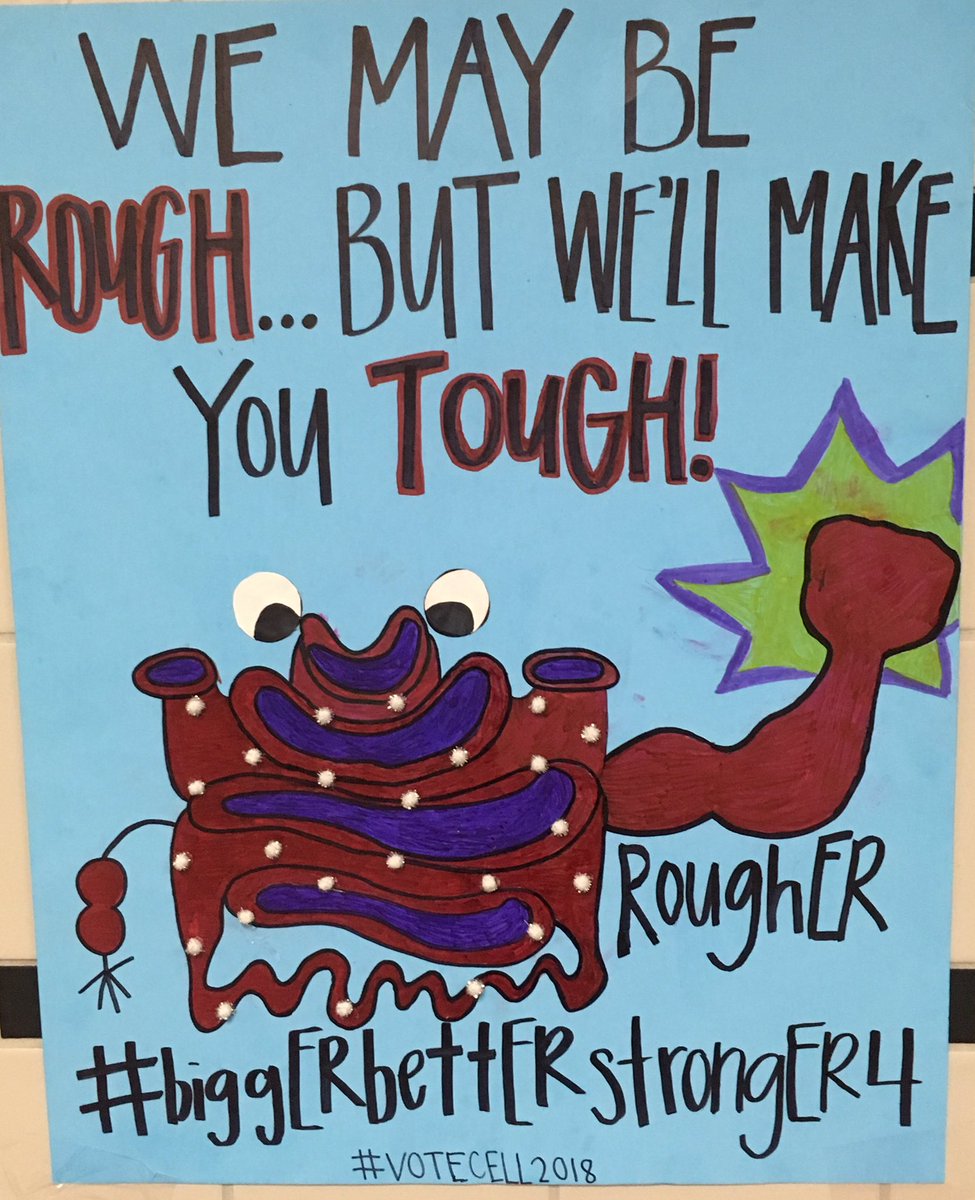 WE MAY BE
ROUGH... BUT WE'LL MAKE
YOU TOUGH!
RoughER
#biggERbettERstrongER4
#VOTECELL2018